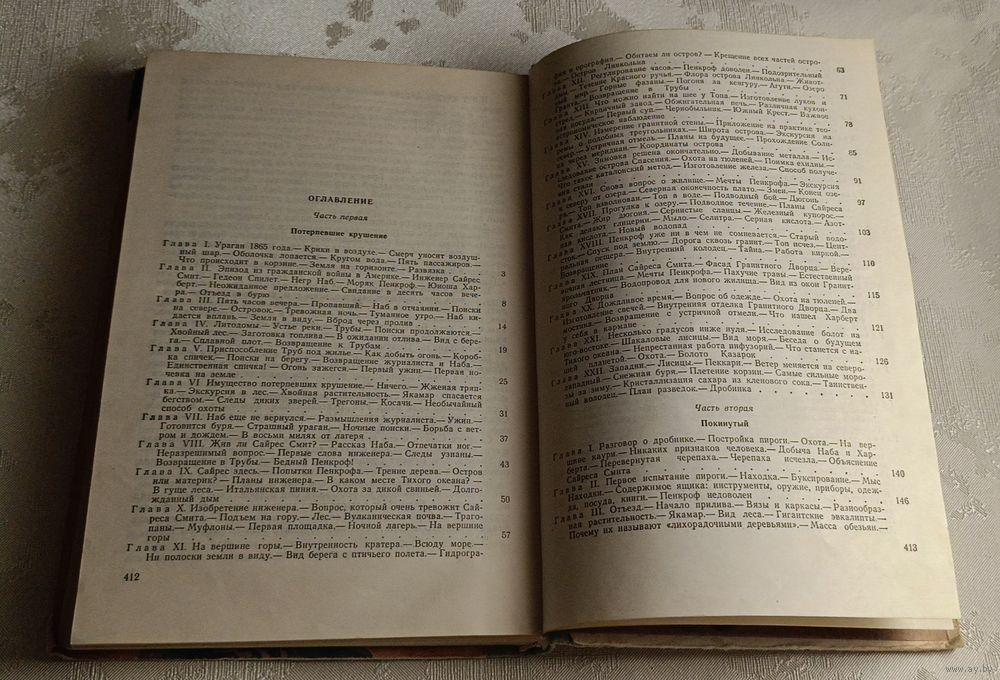 ОГЛАВЛЕНИЕ
Часть первая
Потерпевшие крушение
Глава I. Ураган 1865 года.— Крики в воздухе.— Смерч уносит воздуш-
ный шар.— Оболочка лопается.— Кругом вода.— Пять пассажиров.—
Что происходит в корзине.— Земля на горизонте.— Развязка . . . 3
Глава II. Эпизод из гражданской войны в Америке.— Инженер Сайрес
Смит.— Гедеон Спилет.— Негр Наб.— Моряк Пенкроф.— Юноша Хар-
берт.— Неожиданное предложение.— Свидание в десять часов вече-
ра.— Отъезд в бурю . . . 8
Глава III. Пять часов вечера.— Пропавший.— Наб в отчаянии.— Поиски
на севере.— Островок.— Тревожная ночь.— Туманное утро.— Наб ки-
дается вплавь.— Земля в виду.— Вброд через пролив . . . 14
Глава IV. Литодомы.— Устье реки.— Трубы.— Поиски продолжаются.—
Хвойный лес.— Заготовка топлива.— В ожидании отлива.— Вид с бере-
га.— Сплавной плот.— Возвращение к Трубам . . . 19
Глава V. Приспособление Труб под жилье.— Как добыть огонь.— Короб-
ка спичек.— Поиски на берегу.— Возвращение журналиста и Наба.—
Единственная спичка!— Огонь зажегся.— Первый ужин.— Первая но-
чевка на земле . . . 25
Глава VI. Имущество потерпевших крушение.— Ничего.— Жженая тряп-
ка.— Экскурсия в лес.— Хвойная растительность.— Якамар спасается
бегством.— Следы диких зверей.— Трегоны.— Косачи.— Необычайный
способ охоты . . . 31
Глава VII. Наб еще не вернулся.— Размышления журналиста.— Ужин.—
Готовится буря.— Страшный ураган.— Ночные поиски.— Борьба с вет-
ром и дождем.— В восьми милях от лагеря . . . 37
Глава VIII. Жив ли Сайрес Смит?— Рассказ Наба.— Отпечатки ног.—
Неразрешимый вопрос.— Первые слова инженера.— Следы узнаны.—
Возвращение в Трубы.— Бедный Пенкроф! . . . 43
Глава IX. Сайрес здесь.— Попытки Пенкрофа.— Трение дерева.— Остров
или материк?— Планы инженера.— В каком месте Тихого океана?—
В гуще леса.— Итальянская пиния.— Охота за дикой свиньей.— Долго-
жданный дым . . . 50
Глава X. Изобретение инженера.— Вопрос, который очень тревожит Сай-
реса Смита.— Подъем на гору.— Лес.— Вулканическая почва.— Траго-
паны.— Муфлоны.— Первая площадка.— Ночной лагерь.— На вершине
горы . . . 57
Глава XI. На вершине горы.— Внутренность кратера.— Всюду море.—
Ни полоски земли в виду.— Вид берега с птичьего полета.— Гидрогра-
412
фия и орография.— Обитаем ли остров?— Крещение всех частей остро-
ва.— Остров Линкольна . . . 63
Глава XII. Регулирование часов.— Пенкроф доволен.— Подозрительный
дым.— Течение Красного ручья.— Флора острова Линкольна.— Живот-
ный мир.— Горные фазаны.— Погоня за кенгуру.— Агути.— Озеро
Гранта.— Возвращение в Трубы . . . 71
Глава XIII. Что можно найти на шее у Топа.— Изготовление луков и
стрел.— Кирпичный завод.— Обжигательная печь.— Различная кухон-
ная посуда.— Первый суп.— Чернобыльник.— Южный Крест.— Важное
астрономическое наблюдение . . . 78
Глава XIV. Измерение гранитной стены.— Приложение на практике тео-
ремы о подобных треугольниках.— Широта острова.— Экскурсия на
север.— Устричная отмель.— Планы на будущее.— Прохождение Солн-
ца через меридиан.— Координаты острова . . . 85
Глава XV. Зимовка решена окончательно.— Добывание металла.— Ис-
следование острова Спасения.— Охота на тюленей.— Поимка ехидны.—
Что такое каталонский метод.— Изготовление железа.— Способ получе-
ния стали . . . 91
Глава XVI. Снова вопрос о жилище.— Мечты Пенкрофа.— Экскурсия
к северу от озера.— Северная оконечность плато.— Змеи.— Конец озе-
ра.— Топ взволнован.— Топ в воде.— Подводный бой.— Дюгонь . . . 97
Глава XVII. Прогулка к озеру.— Подводное течение.— Планы Сайреса
Смита.— Жир дюгоня.— Сернистые сланцы.— Железный купорос.—
Как делают глицерин.— Мыло.— Селитра.— Серная кислота.— Азот-
ная кислота.— Новый водопад . . . 103
Глава XVIII. Пенкроф уже ни в чем не сомневается.— Старый водо-
слив.— Спуск под землю.— Дорога сквозь гранит.— Топ исчез.— Цент-
ральная пещера.— Внутренний колодец.— Тайна.— Работа киркой.—
Возвращение . . . 110
Глава XIX. План Сайреса Смита.— Фасад Гранитного Дворца.— Вере-
вочная лестница.— Мечты Пенкрофа.— Пахучие травы.— Естественный
крольчатник.— Водопровод для нового жилища.— Вид из окон Гранит-
ного Дворца . . . 115
Глава XX. Дождливое время.— Вопрос об одежде.— Охота на тюленей.—
Изготовление свечей.— Внутренняя отделка Гранитного Дворца.— Два
мостика.— Возвращение с устричной отмели.— Что нашел Харберт
у себя в кармане . . . 121
Глава XXI. Несколько градусов ниже нуля.— Исследование болот на
юго-востоке.— Шакаловые лисицы.— Вид моря.— Беседа о будущем
Тихого океана.— Непрестанная работа инфузорий.— Что станется с на-
шей планетой.— Охота.— Болото Казарок . . . 126
Глава XXII. Западни.— Лисицы.— Пеккари.— Ветер меняется на северо-
западный.— Снежная буря.— Плетение корзин.— Самые сильные моро-
зы за зиму.— Кристаллизация сахара из кленового сока.— Таинствен-
ный колодец.— План разведок.— Дробинка . . . 131
Часть вторая
Покинутый
Глава I. Разговор о дробинке.— Постройка пироги.— Охота.— На вер-
шине каури.— Никаких признаков человека.— Добыча Наба и Хар-
берта.— Перевернутая черепаха.— Черепаха исчезла.— Объяснение
Сайреса Смита . . . 140
Глава II. Первое испытание пироги.— Находка.— Буксирование.— Мыс
Находки.— Содержимое ящика: инструменты, оружие, приборы, одеж-
да, посуда, книги.— Пенкроф недоволен . . . 146
Глава III. Отъезд.— Начало прилива.— Вязы и каркасы.— Разнообраз-
ная растительность.— Якамар.— Вид леса.— Гигантские эвкалипты.—
Почему их называют «лихорадочными деревьями».— Масса обезьян.—
413
www.ay.by